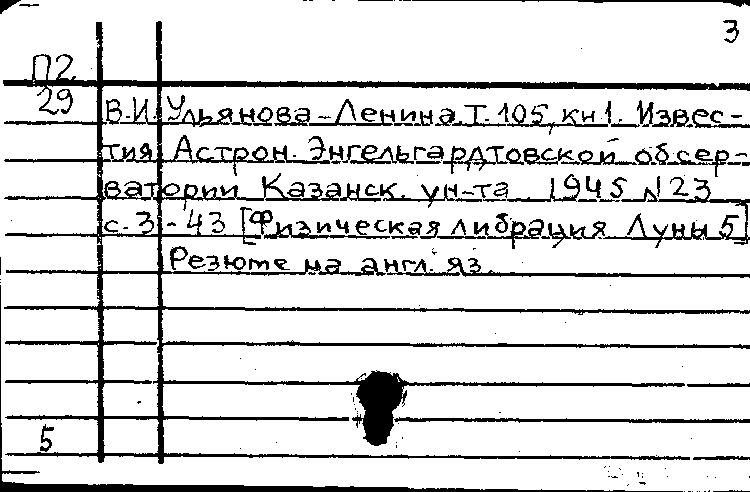 3
П2
29
В.И. Ульянова-Ленина. Т. 105, кн 1. Извес-
тия Астрон. Энгельгардтовской обсер-
ватории Казанск. ун-та. 1945 N 23
с. 3-43 [Физическая либрация Луны 5]
Резюме на англ. яз.
5